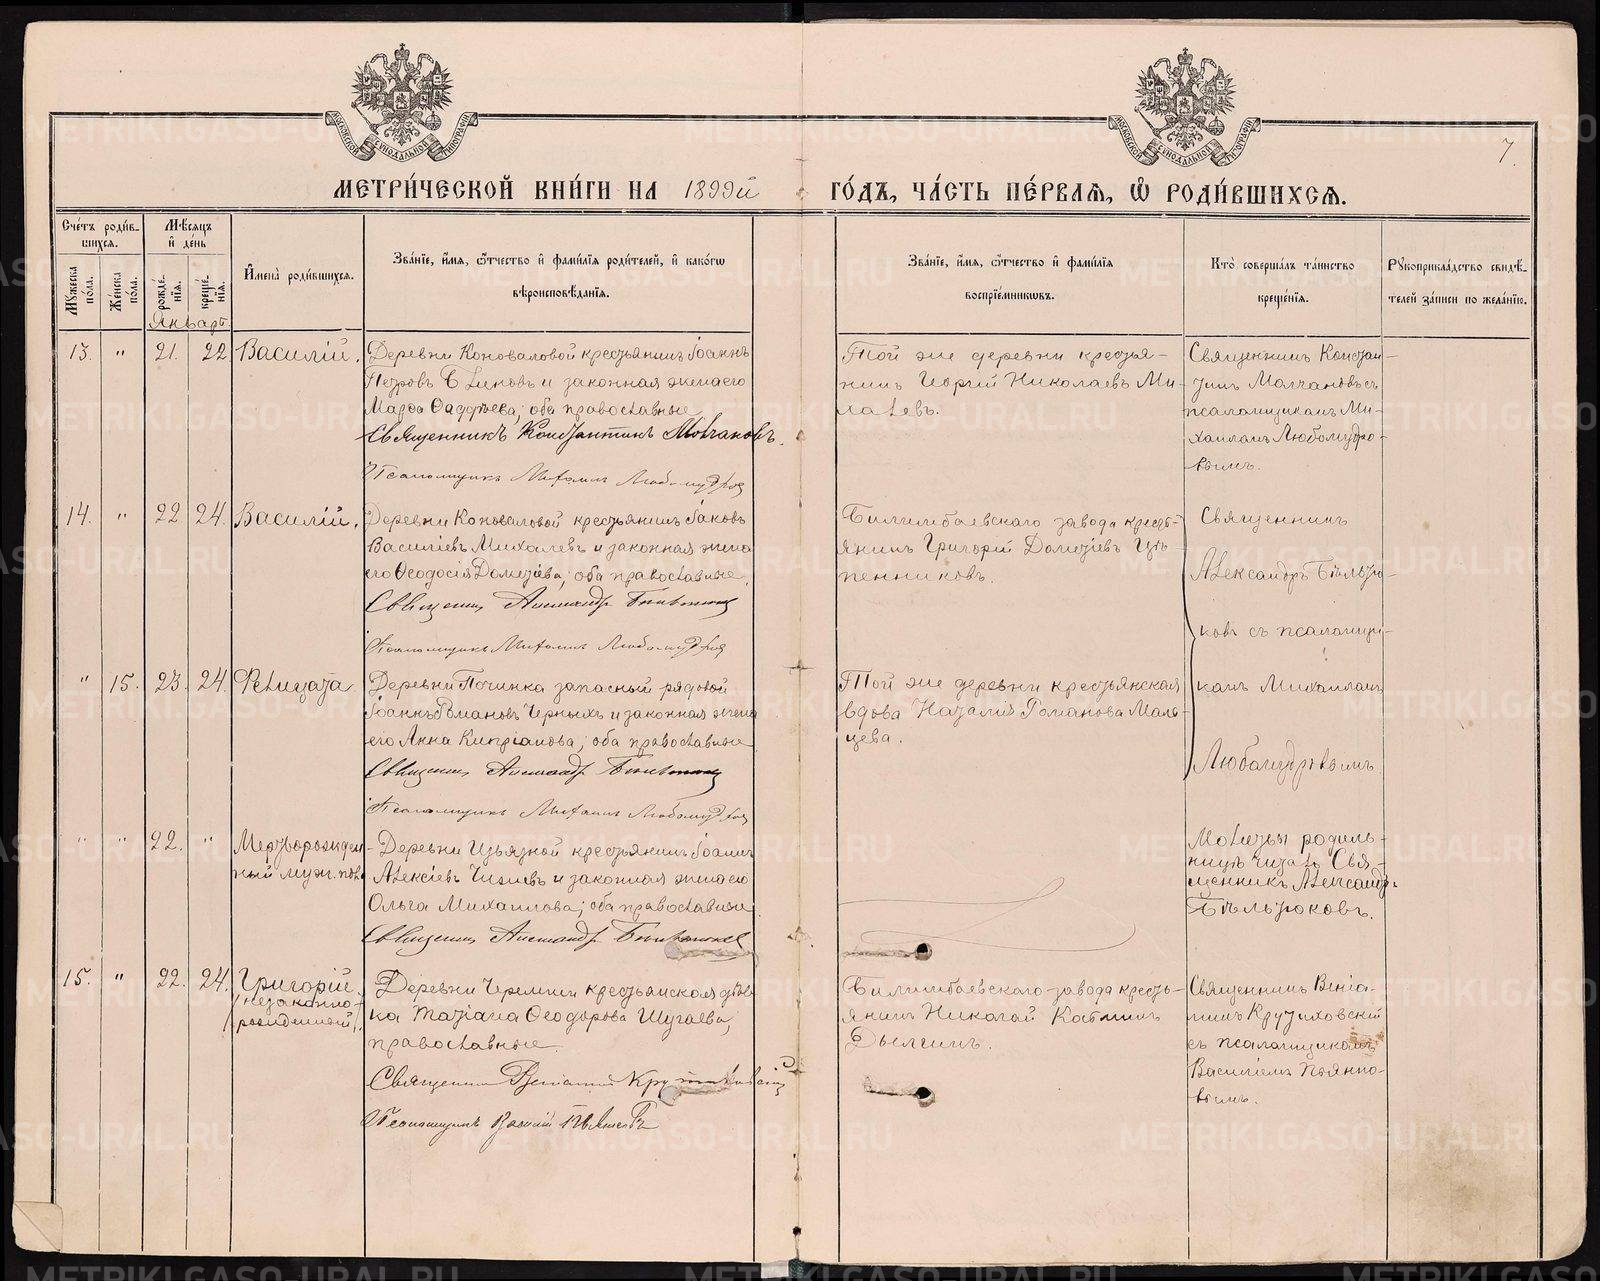 МОСКОВСКОЙ СѴНОДАЛЬНОЙ ТИПОГРАФІИ
МОСКОВСКОЙ СѴНОДАЛЬНОЙ ТИПОГРАФІИ
7.
МЕТРИ́ЧЕСКОЙ КНИ́ГИ НА 1899й ГО́ДЪ, ЧА́СТЬ ПЕ́РВАЯ, Ѡ РОДИ́ВШИХСЯ.
Сче́тъ роди́в-
шихся.
Му́жеска по́ла.
Же́нска по́ла.
Мѣ́сяцъ и де́нь
рожде́-нїя.
креще́-нїя.
Январь.
Имена̀ роди́вшихся.
Зва́нїе, и́мя, ѻ́тчество и фами́лїя роди́телей, и како́гѡ
вѣроисповѣ́данїя.
Зва́нїе, и́мя, ѻ́тчество и фами́лїя
воспрїе́мниковъ.
Кто̀ соверша́лъ та́инство
креще́нїя.
Рꙋкоприкла́дство свидѣ́-
телей за́писи по жела́нїю.
13. " 21. 22 Василій.
Деревни Коноваловой крестьянинъ Іоаннъ
Петровъ и законная жена его
Марѳа Ѳаддѣева; оба православные
Священникъ Константинъ Молчановъ.
Псаломщикъ Михаилъ Любомудровъ
Той же деревни крестья-
нинъ Георгій Николаевъ Ми-
халевъ.
Священникъ Констан-
тинъ Молчановъ съ
псаломщикомъ Ми-
хаиломъ Любомудро-
вымъ.
14. " 22 24. Василій.
Деревни Коноваловой крестьянинъ Іаковъ
Василіевъ Михалевъ и законная жена
его Ѳеодосія Дометіева; оба православные.
Священникъ Александръ Бѣльтюковъ
Псаломщикъ Михаилъ Любомудровъ
Билимбаевскаго завода кресть-
янинъ Григорій Дометіевъ Цѣ-
пенниковъ.
Священникъ
Александръ Бѣльтю-
ковъ съ псаломщи-
комъ Михаиломъ
Любомудровымъ
" 15. 23. 24. Татіана
Деревни Починка запасный рядовой
Іоаннъ Романовъ Черныхъ и законная жена
его Анна Кипріанова; оба православные
Священникъ Александръ Бѣльтюковъ
Псаломщикъ Михаилъ Любомудровъ
Той же деревни крестьянская
вдова Наталія Романова Маль-
цева.
" " 22. " Мертворожден-
ный муж. пола
Деревни Извязной крестьянинъ Іоаннъ
Алексіевъ и законная жена его
Ольга Михаилова; оба православные
Священникъ Александръ Бѣльтюковъ
Молитвы родиль-
ницѣ читалъ Свя-
щенникъ Александръ
Бѣльтюковъ.
15. " 22. 24. Григорій.
(незаконно-
рожденный).
Деревни Черемши крестьянская дѣв-
ка Татіана Ѳеодорова Шугаева,
православные.
Священникъ Веніаминъ Крутиховскій
Псаломщикъ Василій Пьянковъ
Билимбаевскаго завода кресть-
янинъ Николай
Дылдинъ.
Священникъ Веніа-
минъ Крутиховскій
съ псаломщикомъ
Василіемъ Пьянко-
вымъ.
METRIKI.GASO-URAL.RU